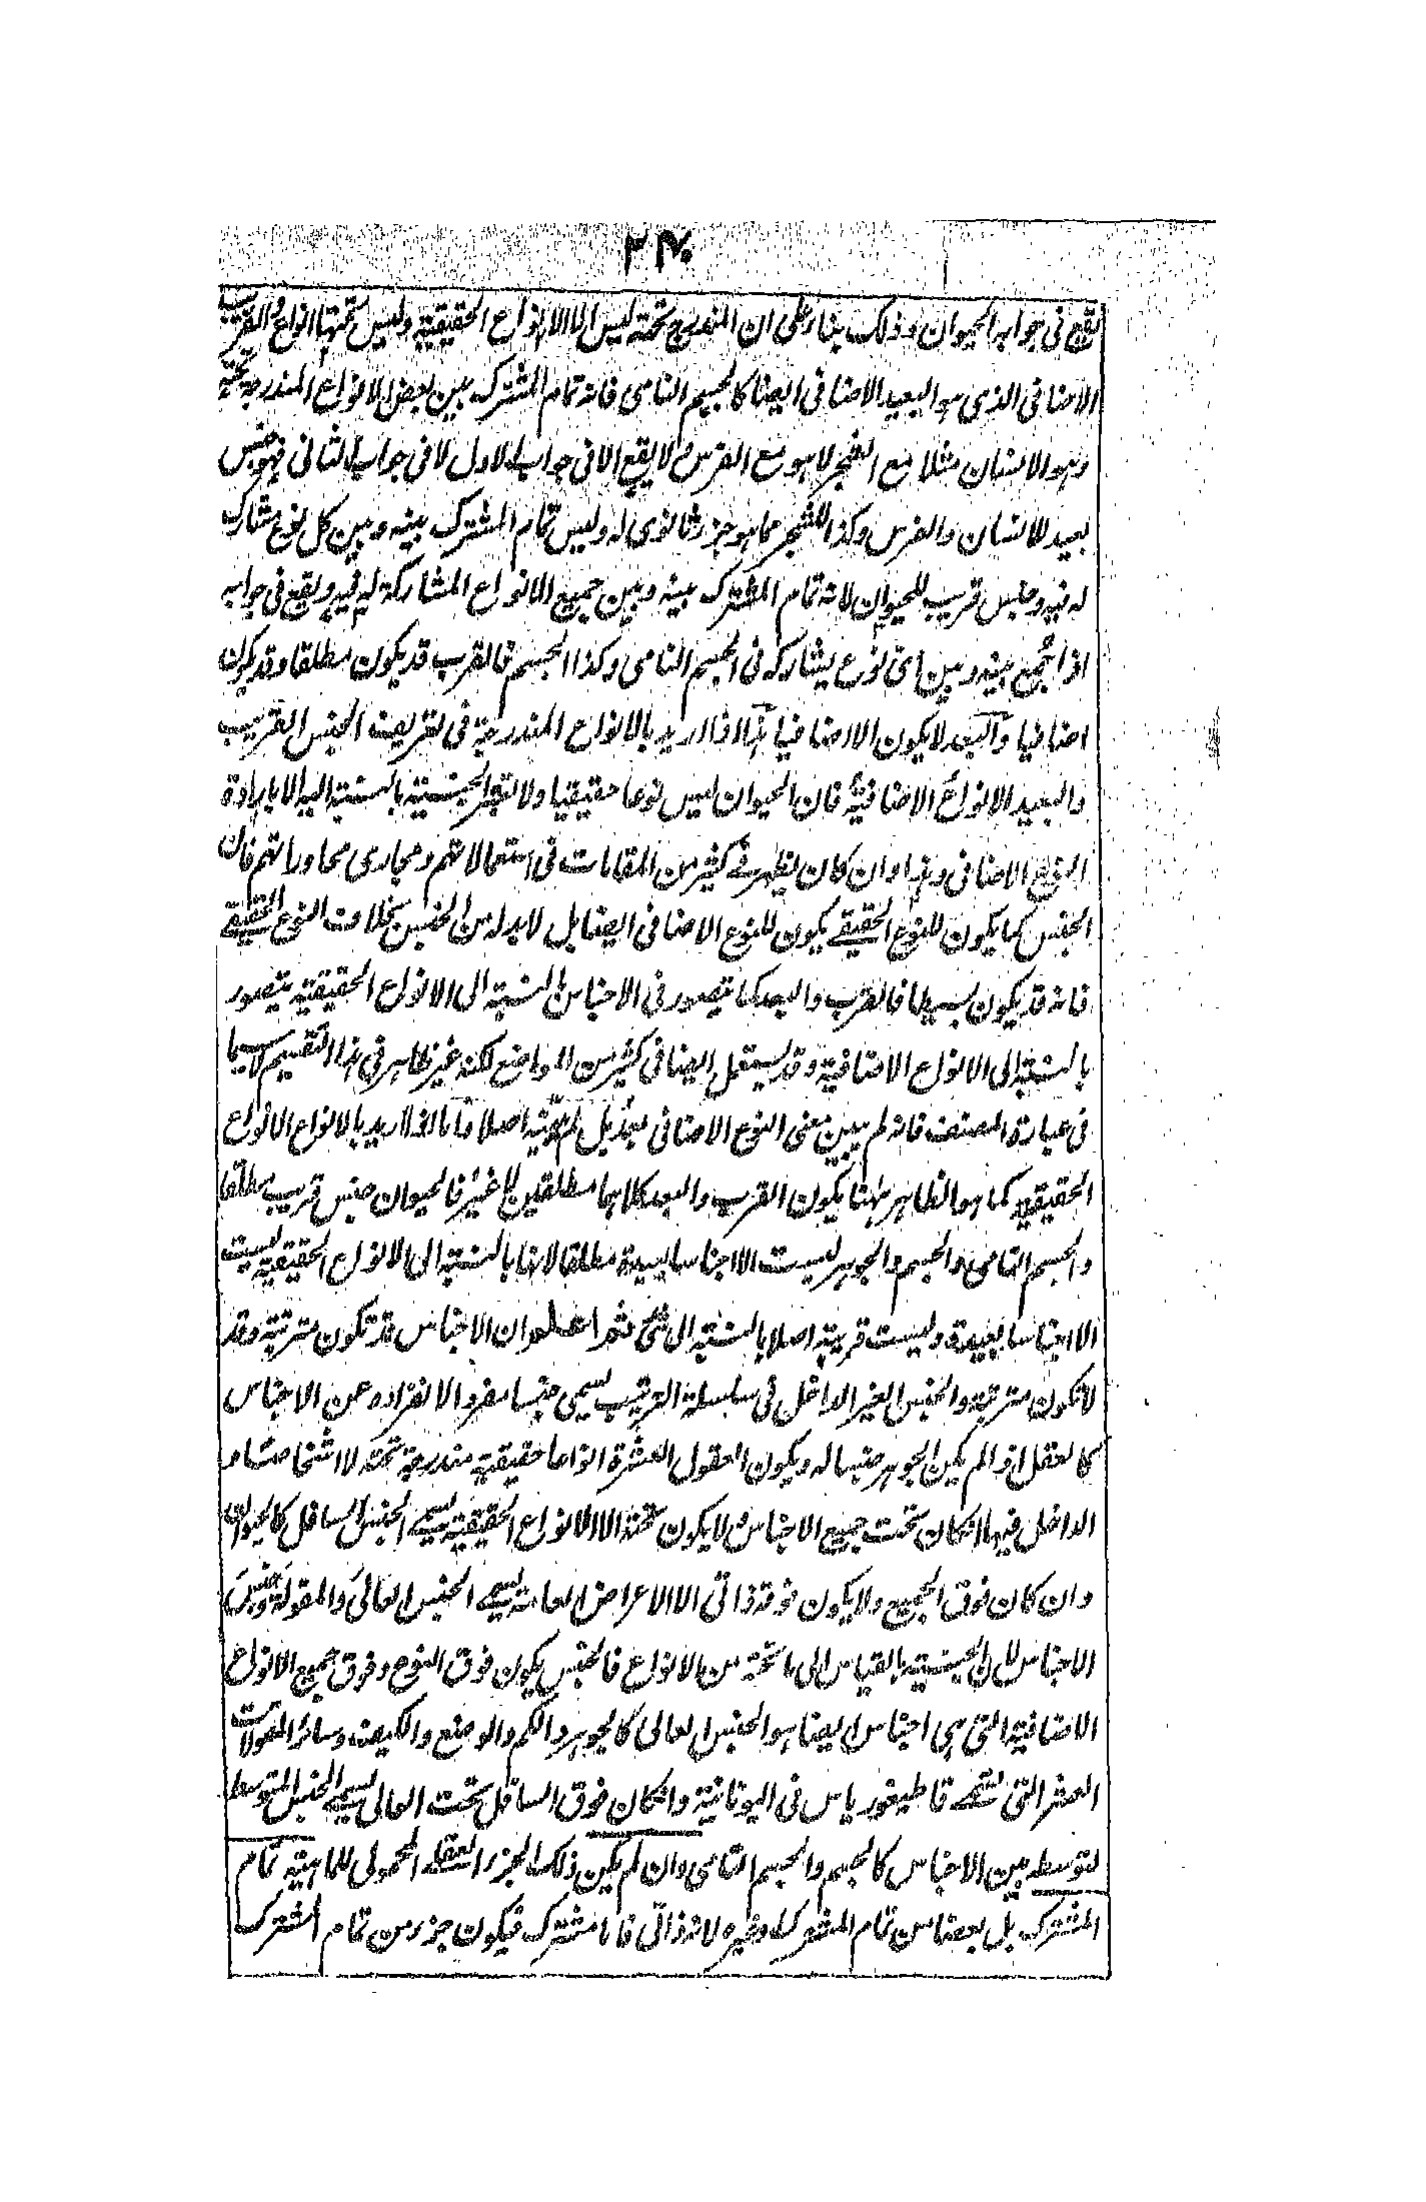 يقع فى جوابه الحيوان وذلك بناء على ان المندرج تحته ليس الا الانواع الحقيقية وليس تحتها انواع والقريب
الاضافى الذى هو البعيد الاضافى ايضا كالجسم النامى فانه تمام المشترك بين بعض الانواع المندرجة تحته
وهو الانسان مثلا مع الشجر لا هو مع الفرس ولا يقع الا فى جواب الاول لا فى جواب الثانى فهو جنس
بعيد للانسان والفرس وكذا للشجر مما هو جزء ثانوى له وليس تمام المشترك بينه وبين كل نوع مشارك
له فيه وجنس قريب للحيوان لانه تمام المشترك بينه وبين جميع الانواع المشاركة له فيه ويقع فى جوابه
اذا جمع بينه وبين اى نوع يشاركه فى الجسم النامى وكذا الجسم فالقرب قد يكون مطلقا وقد يكون
اضافيا والبعد لا يكون الا اضافيا هذا اذا اريد بالانواع المندرجة فى تعريف الجنس القريب
والبعيد الانواع الاضافية فان الحيوان ليس نوعا حقيقيا ولا تعتبر الجنسية بالنسبة اليه الا بارادة
النوع الاضافى وهذا وان كان يظهر فے كثير من المقامات فى استعمالاتهم ومجارى محاوراتهم فان
الجنس كما يكون للنوع الحقيقے يكون للنوع الاضافى ايضا بل لابد له من الجنس بخلاف النوع الحقيقے
فانه قد يكون بسيطا فالقرب والبعد كما يتصور فى الاجناس بالنسبة الى الانواع الحقيقية يتصور
بالنسبة الى الانواع الاضافية وقد يستعمل ايضا فى كثير من المواضع لكنه غير ظاهر فى هذا التقسيم لاسيما
فى عبارة المصنف فانه لم يبين معنى النوع الاضافى بعد بل لم اصلا فاما اذا اريد بالانواع الانواع
الحقيقية كما هو الظاهر ههنا يكون القرب والبعد كلاهما مطلقين لا غير فالحيوان جنس قريب مطلقا
والجسم النامى والجسم والجوهر ليست الا اجناسا بعيدة مطلقا لانها بالنسبة الى الانواع الحقيقية ليست
الا اجناسا بعيدة وليست قريبة اصلا بالنسبة الى شئ ثم اعلم ان الاجناس قد تكون مترتبة وقد
لا تكون مترتبة والجنس الغير الداخل فى سلسلة الترتيب يسمى جنسا مفردا لانفراده عن الاجناس
كالعقل اذا لم يكن الجوهر جنسا له ويكون العقول العشرة انواعا حقيقية مندرجة تحته لا اشخاصا و
الداخل فيها ان كان تحت جميع الاجناس ولا يكون تحته الا الانواع الحقيقية يسمے الجنس السافل كالحيوان
وان كان فوق الجميع ولا يكون فوقه ذاتى الا الاعراض العامة يسمے الجنس العالى والمقولة وجنس
الاجناس لان الجنسية بالقياس الى ما تحته من الانواع فالجنس يكون فوق النوع وفوق جميع الانواع
الاضافية التى هى اجناس ايضا هو الجنس العالى كالجوهر والكم والوضع والكيف وسائر المقولات
العشر التى تسمے قاطيغورياس فى اليونانية وان كان فوق السافل تحت العالى يسمے الجنس المتوسط
لتوسطه بين الاجناس كالجسم والجسم النامى وان لم يكن ذلك الجزء العقلے المحمول للماهية تمام
المشترك بل بعضا من تمام المشترك او غيره لانه ذاتى فاما مشترك فيكون جزء من تمام المشترك